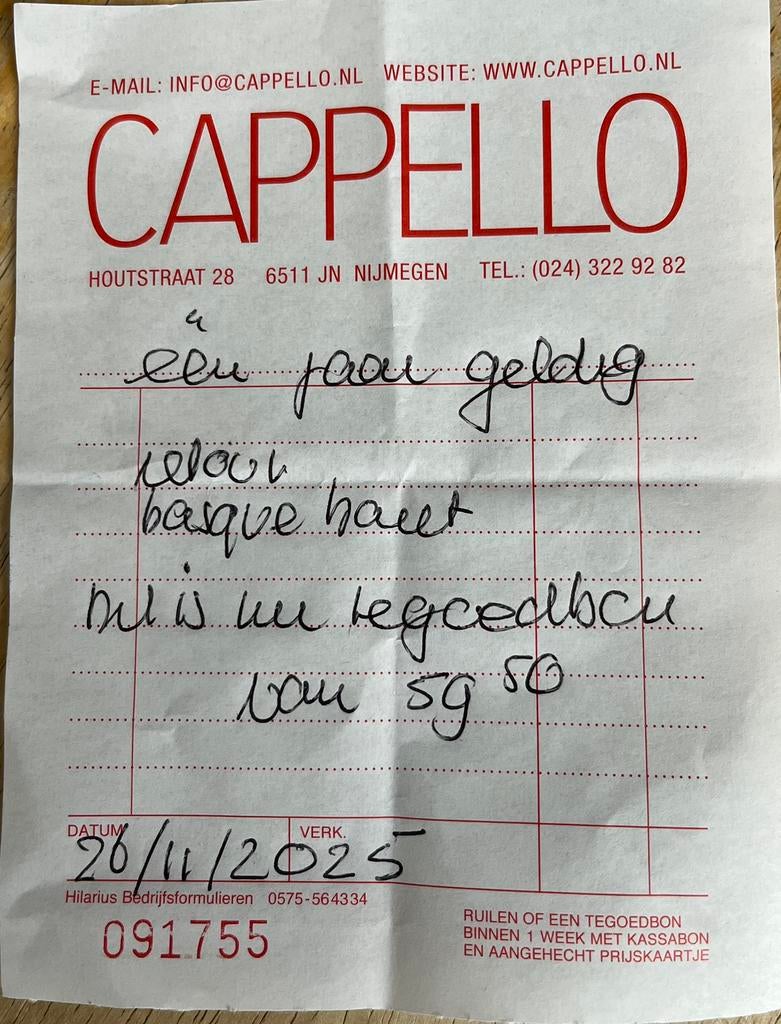 E-MAIL: INFO@CAPPELLO.NL WEBSITE: WWW.CAPPELLO.NL
CAPPELLO
HOUTSTRAAT 28 6511 JN NIJMEGEN TEL.: (024) 322 92 82
één jaar geldig
retour
basque haut
Dit is un tegoedbon
van 59 50
DATUM VERK.
26/11/2025
Hilarius Bedrijfsformulieren 0575-564334
091755
RUILEN OF EEN TEGOEDBON
BINNEN 1 WEEK MET KASSABON
EN AANGEHECHT PRIJSKAARTJE